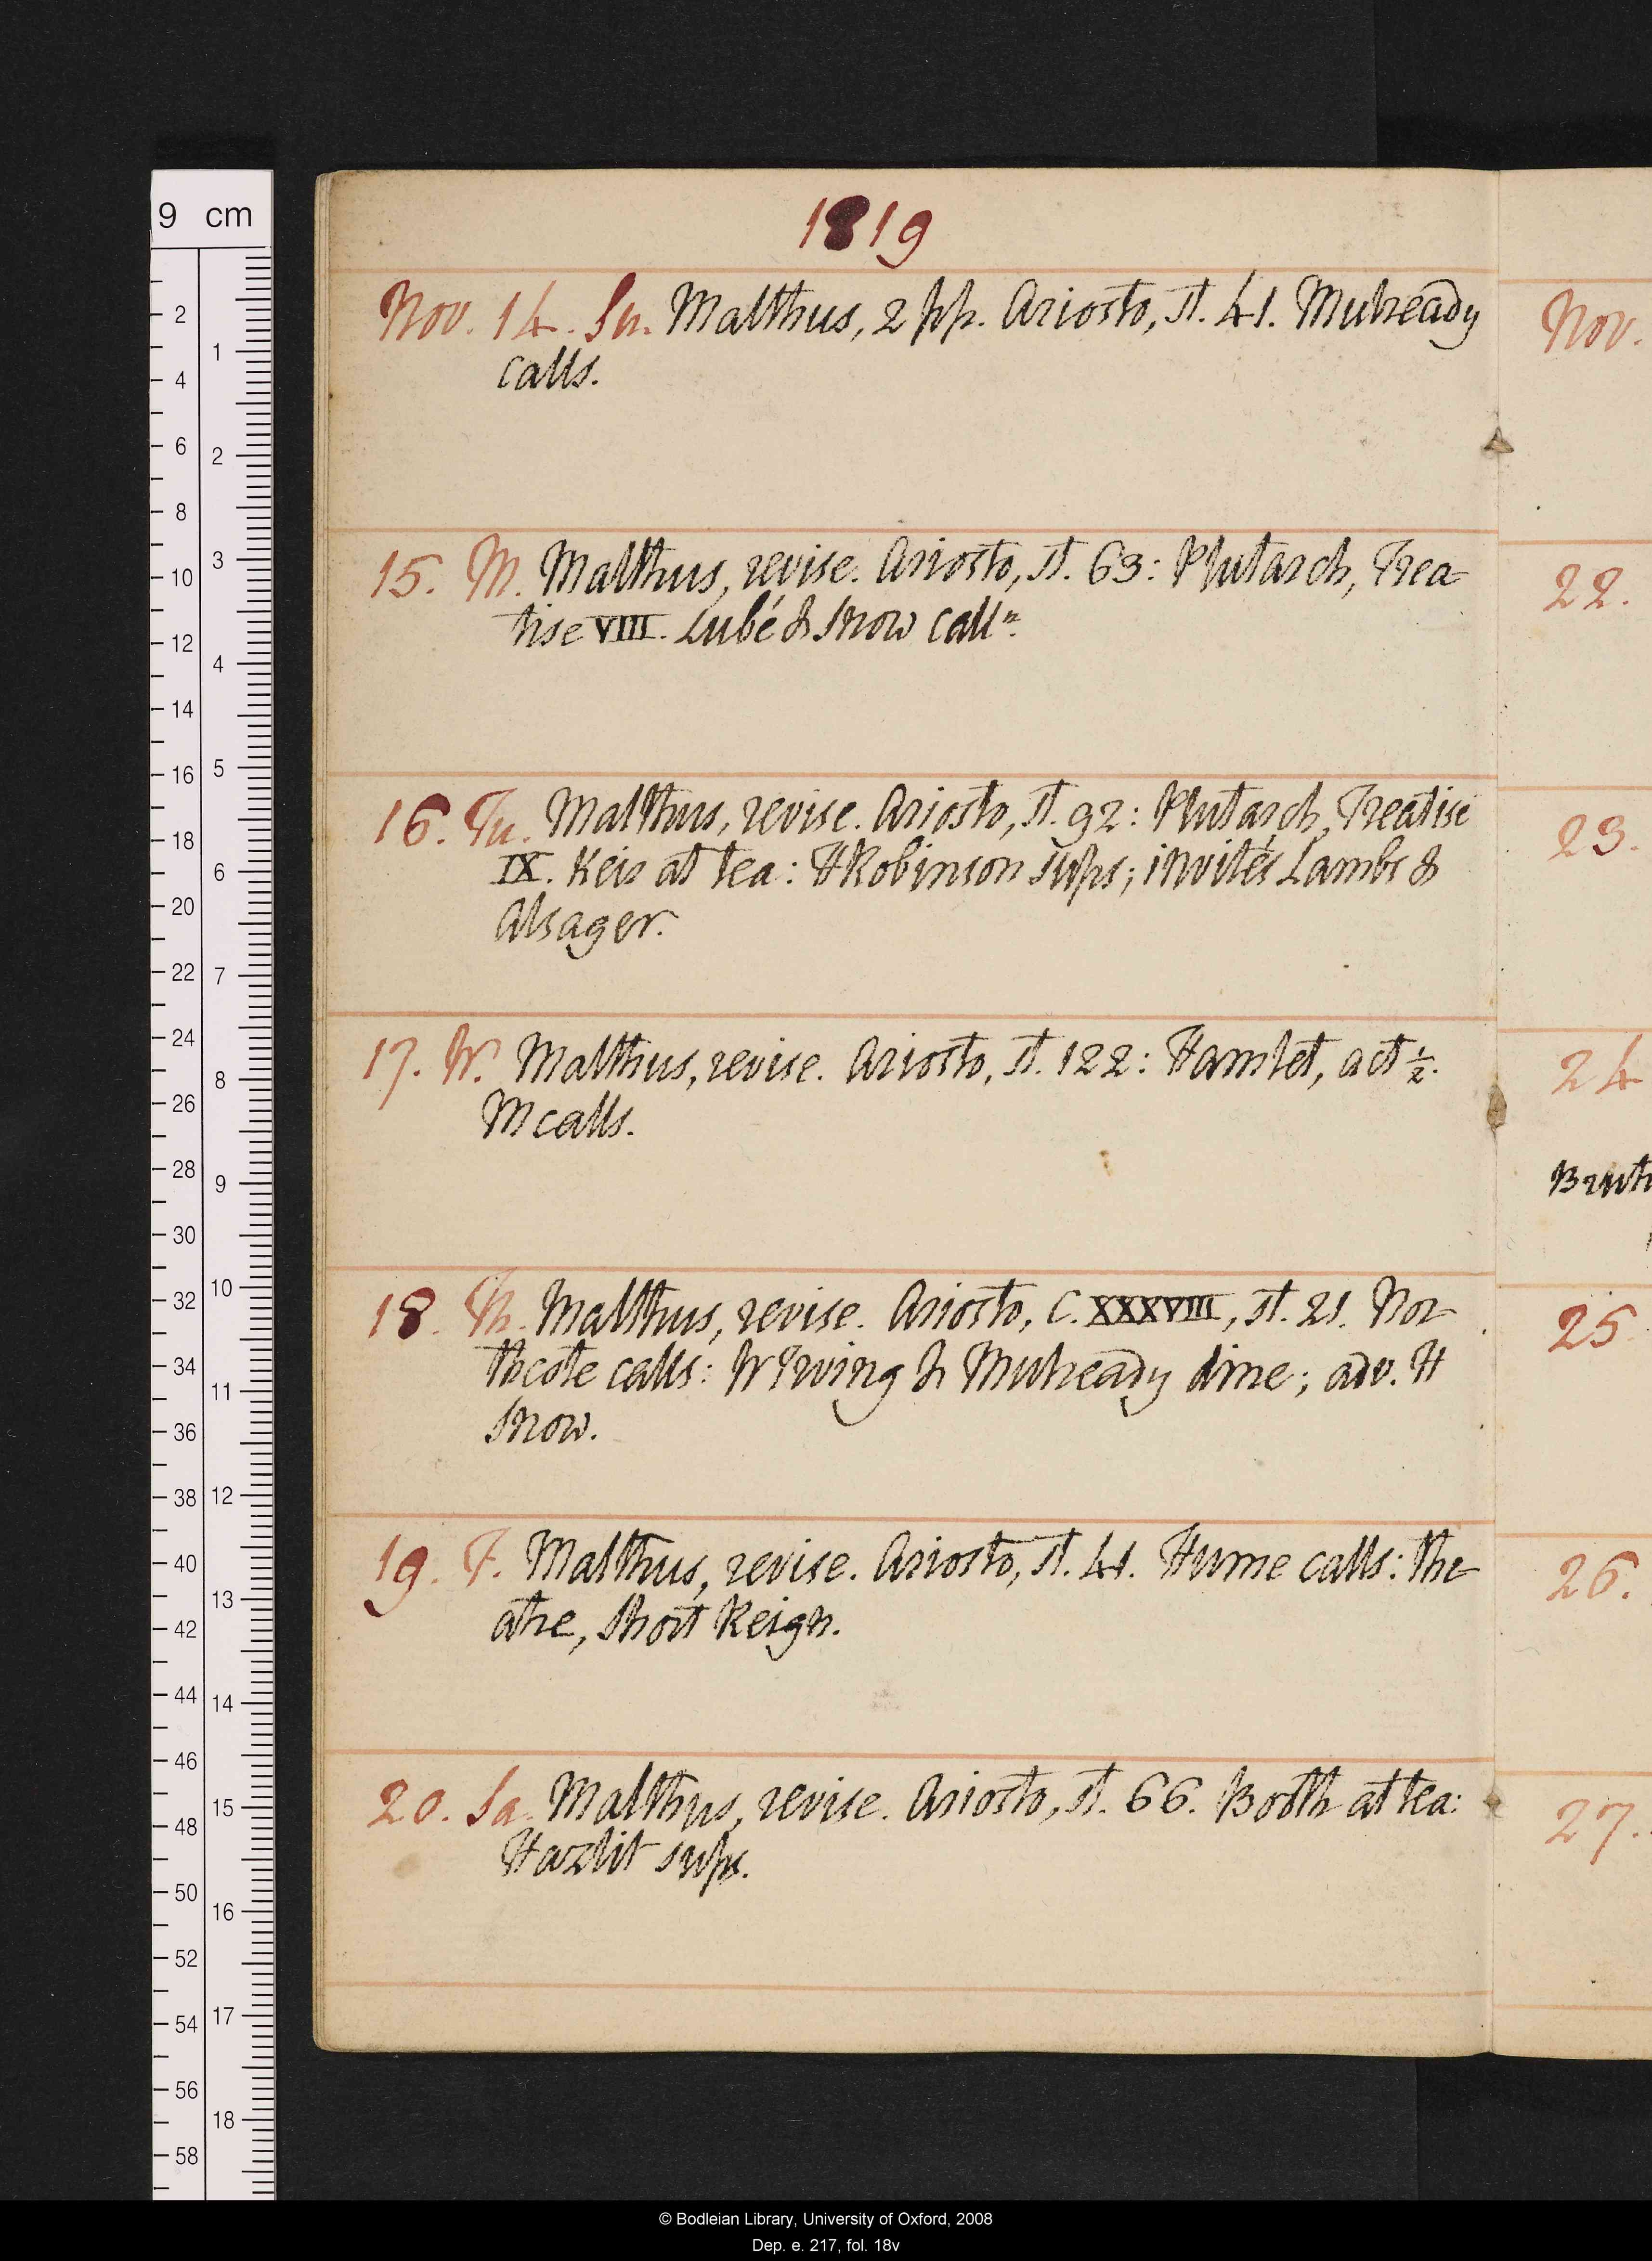 1819
Nov. 14. Su. Malthus, 2 pp. Ariosto, st. 41. Mulready
calls.
15. M. Malthus, revise. Ariosto, st. 63: Plutarch, Trea-
tise VIII. Lubé & Snow calln.
16. Tu. Malthus, revise. Ariosto, st. 92: Plutarch, Treatise
IX. Keir at tea: HRobinson sups; invités Lambs &
Alsager.
17. W. Malthus, revise. Ariosto, st. 122: Hamlet, act ½.
M calls.
18. Th. Malthus, revise. Ariosto, C. XXXVIII, st. 21. Nor-
thcote calls: W Irving & Mulready dine; adv. H
Snow.
19. F. Malthus, revise. Ariosto, st. 41. Hume calls: the-
atre, Short Reign.
20. Sa. Malthus, revise. Ariosto, st. 66. Booth at tea:
Hazlit sups.
Nov.
22.
23.
24
25
26.
27.
9 cm
2
4
6
8
10
12
14
16
18
20
22
24
26
28
30
32
34
36
38
40
42
44
46
48
50
52
54
56
58
1
2
3
4
5
6
7
8
9
10
11
12
13
14
15
16
17
18
© Bodleian Library, University of Oxford, 2008
Dep. e. 217, fol. 18v